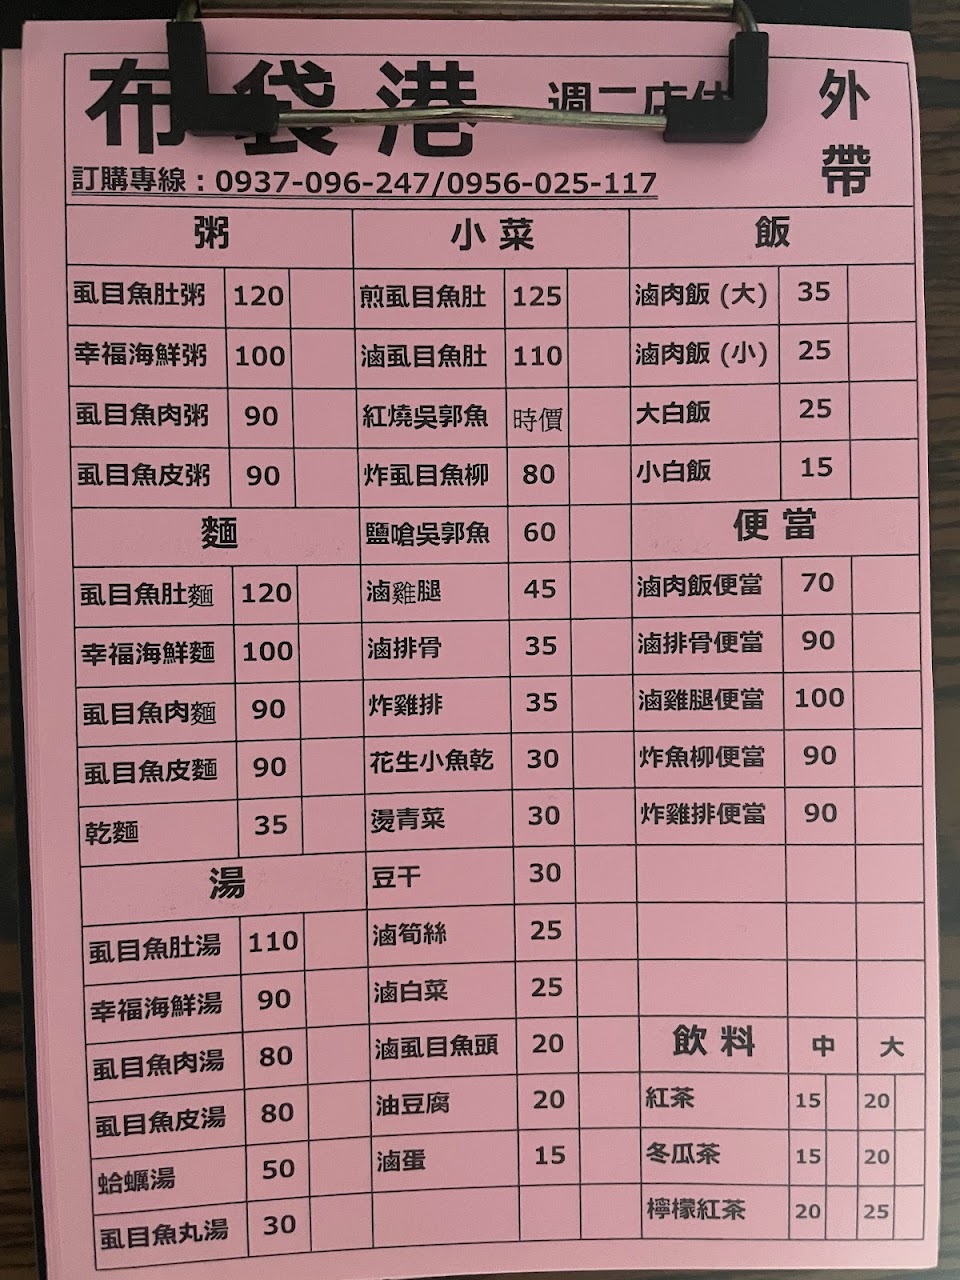 布袋港 週二店休 外帶
訂購專線：0937-096-247/0956-025-117
粥
虱目魚肚粥 120
幸福海鮮粥 100
虱目魚肉粥 90
虱目魚皮粥 90
麵
虱目魚肚麵 120
幸福海鮮麵 100
虱目魚肉麵 90
虱目魚皮麵 90
乾麵 35
湯
虱目魚肚湯 110
幸福海鮮湯 90
虱目魚肉湯 80
虱目魚皮湯 80
蛤蠣湯 50
虱目魚丸湯 30
小菜
煎虱目魚肚 125
滷虱目魚肚 110
紅燒吳郭魚 時價
炸虱目魚柳 80
鹽嗆吳郭魚 60
滷雞腿 45
滷排骨 35
炸雞排 35
花生小魚乾 30
燙青菜 30
豆干 30
滷筍絲 25
滷白菜 25
滷虱目魚頭 20
油豆腐 20
滷蛋 15
飯
滷肉飯 (大) 35
滷肉飯 (小) 25
大白飯 25
小白飯 15
便當
滷肉飯便當 70
滷排骨便當 90
滷雞腿便當 100
炸魚柳便當 90
炸雞排便當 90
飲料 中 大
紅茶 15 20
冬瓜茶 15 20
檸檬紅茶 20 25